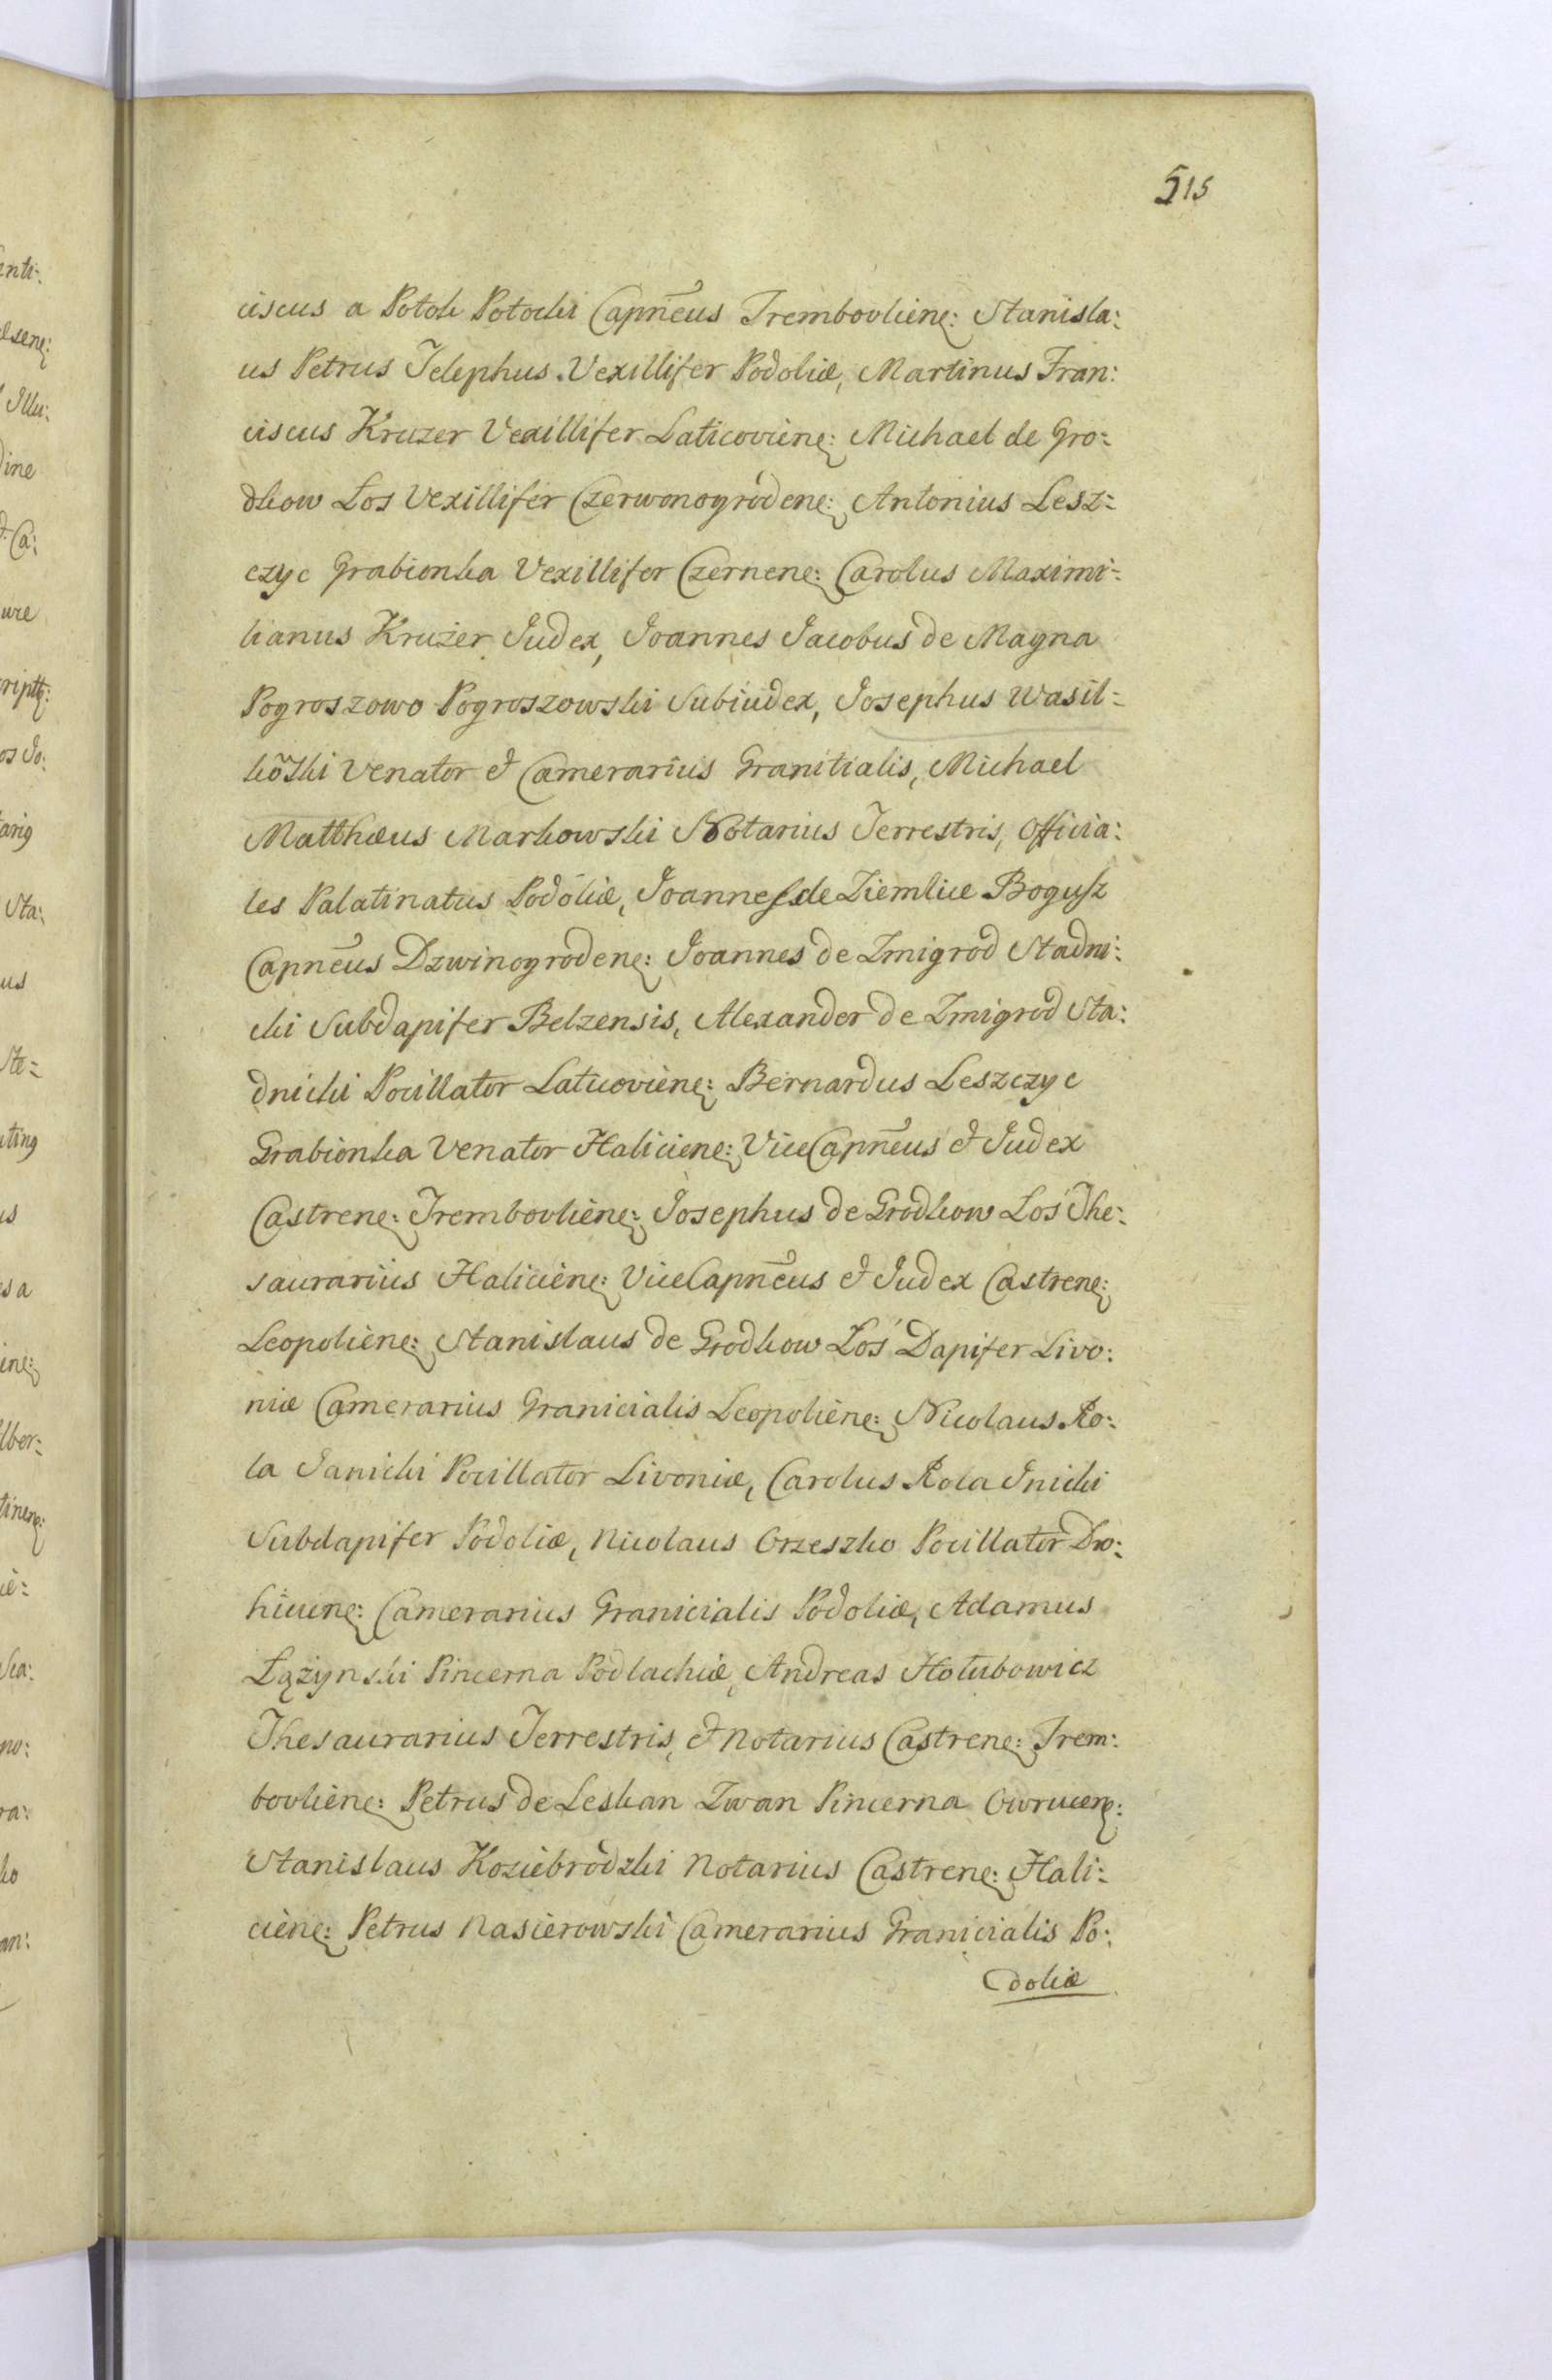 515
ciscus a Potok Potocki Capnẽus Trembovliene: Stanisla:
us Petrus Telephus Vexillifer Podoliæ, Martinus Fran:
ciscus Kruzer Vexillifer Laticoviene: Michael de Gro:
dkow Łos Vexillifer Czerwonogródene: Antonius Lesz:
czyc Grabionka Vexillifer Czernene: Carolus Maximi:
lianus Krużer Judex, Joannes Jacobus de Magna
Pogroszowo Pogroszowski Subiudex, Josephus Wasil:
kõski Venator et Camerarius Granitialis, Michael
Matthæus Markowski Notarius Terrestris, Officia:
les Palatinatus Podoliæ, Joannes de Ziemlice Bogusz
Capnẽus Dzwinogrodene: Joannes de Zmigrod Stadni:
cki Subdapifer Belzensis, Alexander de Zmigrod Sta:
dnicki Pocillator Laticoviene: Bernardus Leszczyc
Grabionka Venator Haliciene: ViceCapnẽus et Judex
Castrene: Trembovliene: Josephus de Grodkow Łoś The:
saurarius Haliciene: ViceCapnẽus et Judex Castrene:
Leopoliene: Stanislaus de Grodkow Łoś Dapifer Livo:
niæ Camerarius Granicialis Leopoliene: Nicolaus Ro:
la Janicki Pocillator Livoniæ, Carolus Rola Jnicki
Subdapifer Podoliæ, Nicolaus Orzeszko Pocillator Dro:
hicene: Camerarius Granicialis Podoliæ, Adamus
Łążynski Pincerna Podlachiæ, Andreas Hołubowicz
Thesaurarius Terrestris, et Notarius Castrene: Trem:
bovliene: Petrus de Leskan Zwan Pincerna Owrucene:
Stanislaus Koziebrodzki Notarius Castrene: Hali:
ciene: Petrus Nasierowski Camerarius Granicialis Po:
doliæ